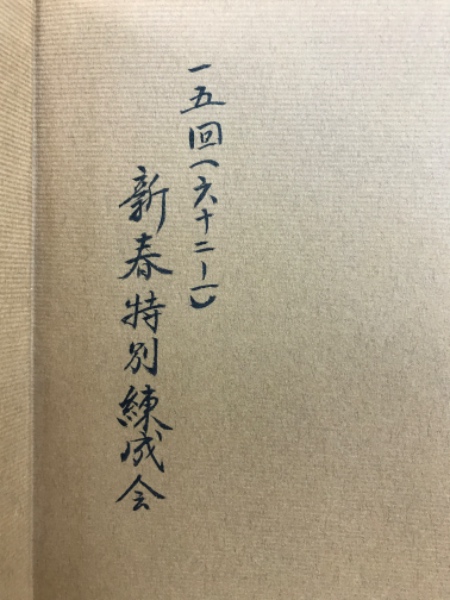 一五回(六十二-一)
新春特別練成会